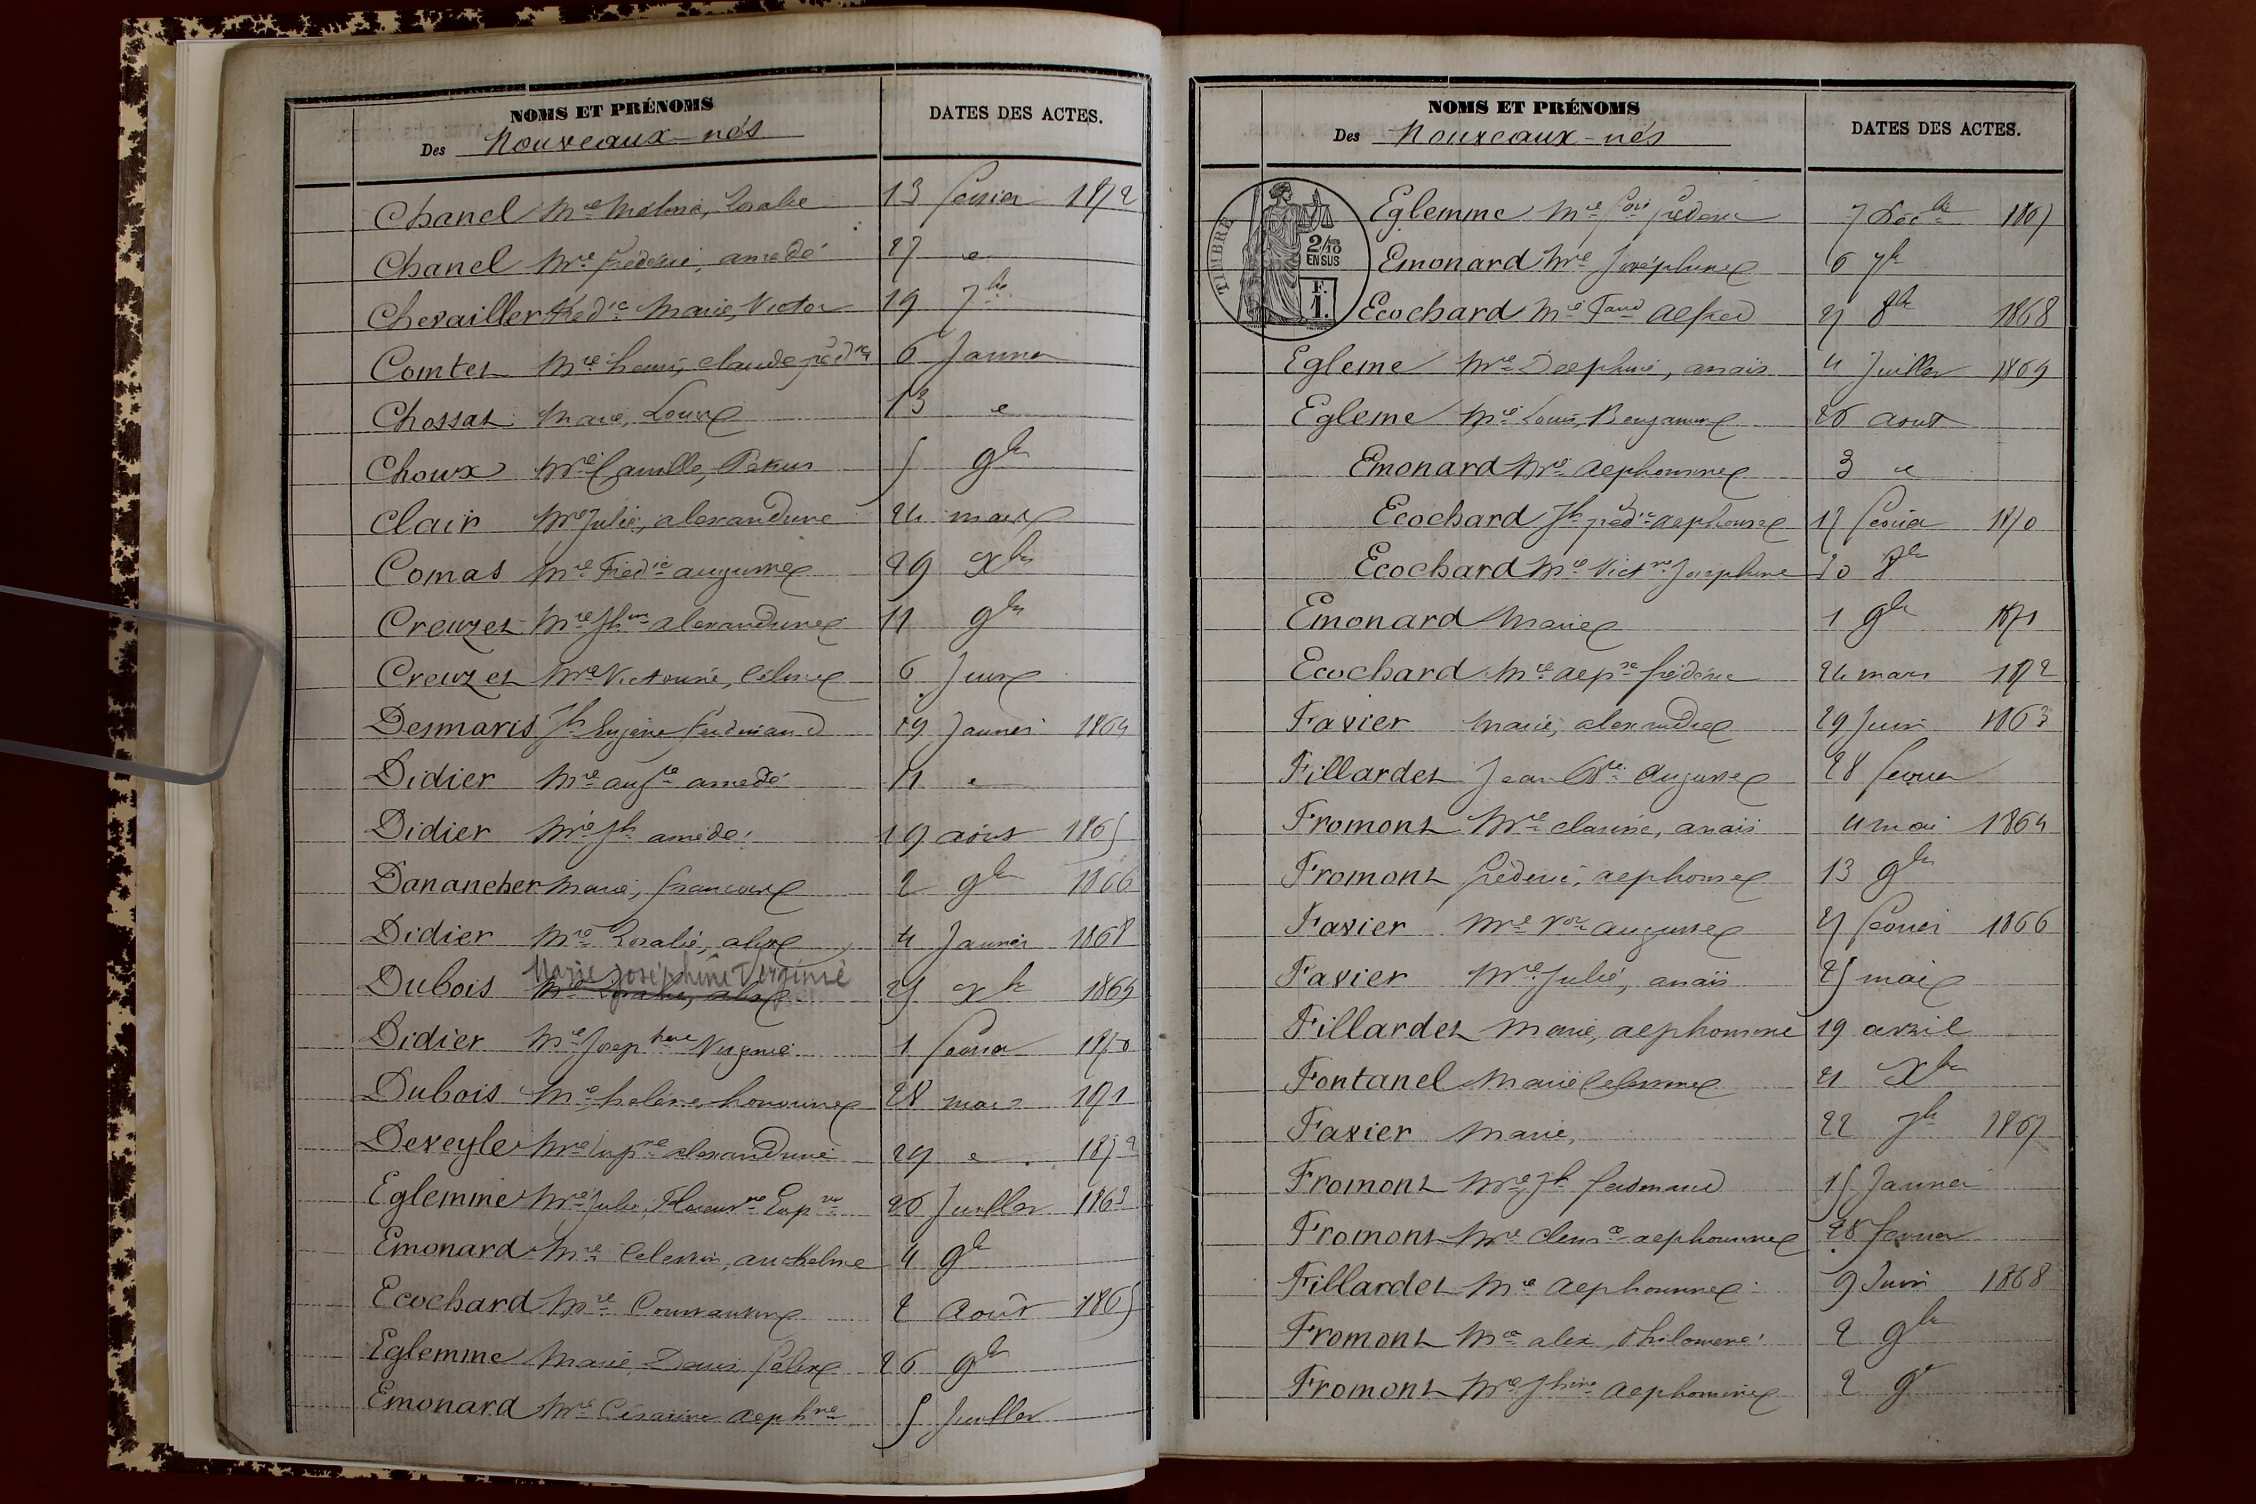 NOMS ET PRÉNOMS
Des Nouveaux-nés
DATES DES ACTES.
Chanel Mie Mélina, Rosalie 13 février 1872
Chanel Mie frédéric, amédé 27 e
Chevailler fréd ic Marie, Victor 19 7bre
Comtet Mie henri, claude 6 Janvier
Chossat Marie, Louise 13 e
Choux Mie Camille, 5 9bre
Clair Mie Julie, alexandrine 24 mars
Comas Mie Fréd ic augustine 29 Xbre
Creuzet Mie Jh ine alexandrine 11 9bre
Creuzet Mie Victorine, Céline 6 Juin
Desmaris Jh Eugène ferdinand 19 Janvier 1864
Didier Mie aug te amédé 11 e
Didier Mie Jh amédé 19 août 1865
Danancher Marie, françoise 2 9bre 1866
Didier Mie Rosalie, alix 4 Janvier 1868
Marie Joséphine Virginie
Dubois Mie Rosalie, alix 25 Xbre 1869
Didier Mie Josep hine Virginie 1 février 1870
Dubois Mie helène, honorine 28 mars 1871
Deveyle Mie alexandrine 29 e 1872
Eglemme Mie Julie, 26 Juillet 1863
Emonard Mie Celestin, anthelme 4 9bre
Ecochard Mie Constantine 2 Août 1865
Eglemme Marie Denis Félix 26 9bre
Emonard Mie Césarine alph ine 5 Juillet
NOMS ET PRÉNOMS
Des Nouveaux-nés
DATES DES ACTES.
TIMBRE
2/10
EN SUS
F.
1.
Eglemme Mie frédéric 7 Déc bre 1867
Emonard Mie Joséphine 6 7bre
Ecochard Mie alfred 27 8bre 1868
Egleme Mie Delphine, anais 4 Juillet 1869
Egleme Mie Louis, Benjamin 26 août
Emonard Mie alphonsine 3 e
Ecochard Jh fréd ic alphonse 17 février 1870
Ecochard Mie Vict ine Josephine 30 8bre
Emonard Marie 1 9bre 1871
Ecochard Mie alp se frédéric 24 mars 1872
Favier Marie, alexandre 29 Juin 1863
Fillardet Jean Bte Auguste 28 février
Fromont Mie clarisse, anais 4 mai 1864
Fromont frédéric, alphonse 13 9bre
Favier Mie auguste 27 février 1866
Favier Mie Julie, anaïs 25 mai
Fillardet Marie, alphonsine 19 avril
Fontanel Marie Celestine 21 Xbre
Favier Marie, 22 7bre 1867
Fromont Mie Jh ferdinand 15 Janvier
Fromont Mie clem ce alphonsine 28 février
Fillardet Mie Alphonsine 9 Juin 1868
Fromont Mie alix, Philomene 2 9bre
Fromont Mie Jhine Alphonsine 2 9bre